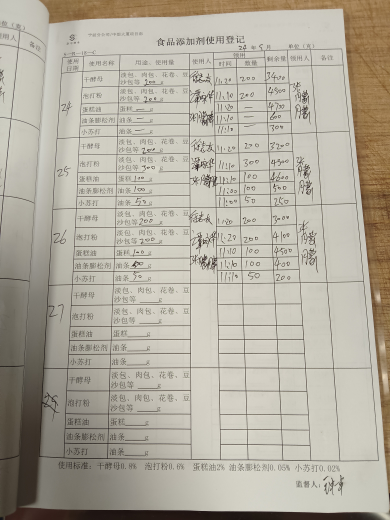 食品添加剂使用登记
24 年 5 月 单位（克）
使用日期 使用名称 用途、使用量 使用人 领用 时间 数量 剩余量 领用人 备注
24
干酵母 淡包、肉包、花卷、豆沙包等 200 g 11:20 200 3400
泡打粉 淡包、肉包、花卷、豆沙包等 200 g 11:20 200
蛋糕油 蛋糕 — g 11:20 — 4700
油条膨松剂 油条 — g 11:10 — 600
小苏打 油条 — g 11:10 — 300
25
干酵母 淡包、肉包、花卷、豆沙包等 200 g 11:20 200 3200
泡打粉 淡包、肉包、花卷、豆沙包等 g 11:20 300
蛋糕油 蛋糕 100 g 11:10 100 4600
油条膨松剂 油条 100 g 11:00 100 500
小苏打 油条 50 g 11:00 50 250
26
干酵母 淡包、肉包、花卷、豆沙包等 200 g 11:20 200 3000
泡打粉 淡包、肉包、花卷、豆沙包等 200 g 11:20 200 4100
蛋糕油 蛋糕 100 g 11:10 100 4500
油条膨松剂 油条 g 11:10 100 400
小苏打 油条 50 g 11:10 50 200
27
干酵母 淡包、肉包、花卷、豆沙包等 g
泡打粉 淡包、肉包、花卷、豆沙包等 g
蛋糕油 蛋糕 g
油条膨松剂 油条 g
小苏打 油条 g
干酵母 淡包、肉包、花卷、豆沙包等 g
泡打粉 淡包、肉包、花卷、豆沙包等 g
蛋糕油 蛋糕 g
油条膨松剂 油条 g
小苏打 油条 g
使用标准：干酵母0.8% 泡打粉0.6% 蛋糕油2% 油条膨松剂0.05% 小苏打0.02%
监督人：